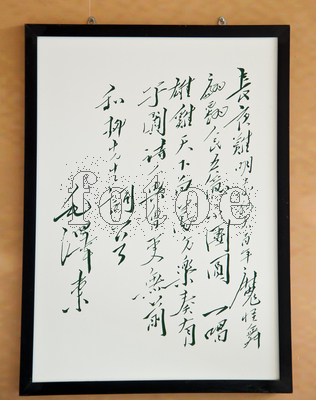 長夜難明赤縣天百年魔怪舞
翩人民五億不團圓一唱
雄雞天下白萬方樂奏有
于闐詩人興會更無前
和柳
毛澤東
fotoe